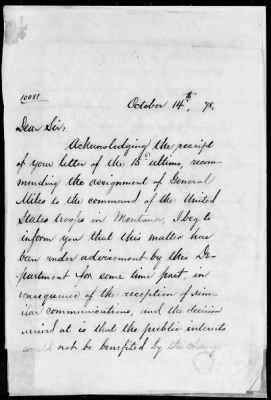 10081
October 14th, 78.
Dear Sir:
Acknowledging the receipt
of your letter of the 13th ultimo, recom-
mending the assignment of General
Miles to the command of the United
States troops in Montana, I beg to
inform you that this matter has
been under advisement by this De-
partment for some time past, in
consequence of the reception of simi-
lar communications, and the decision
arrived at is that the public interests
would not be benefited by the change